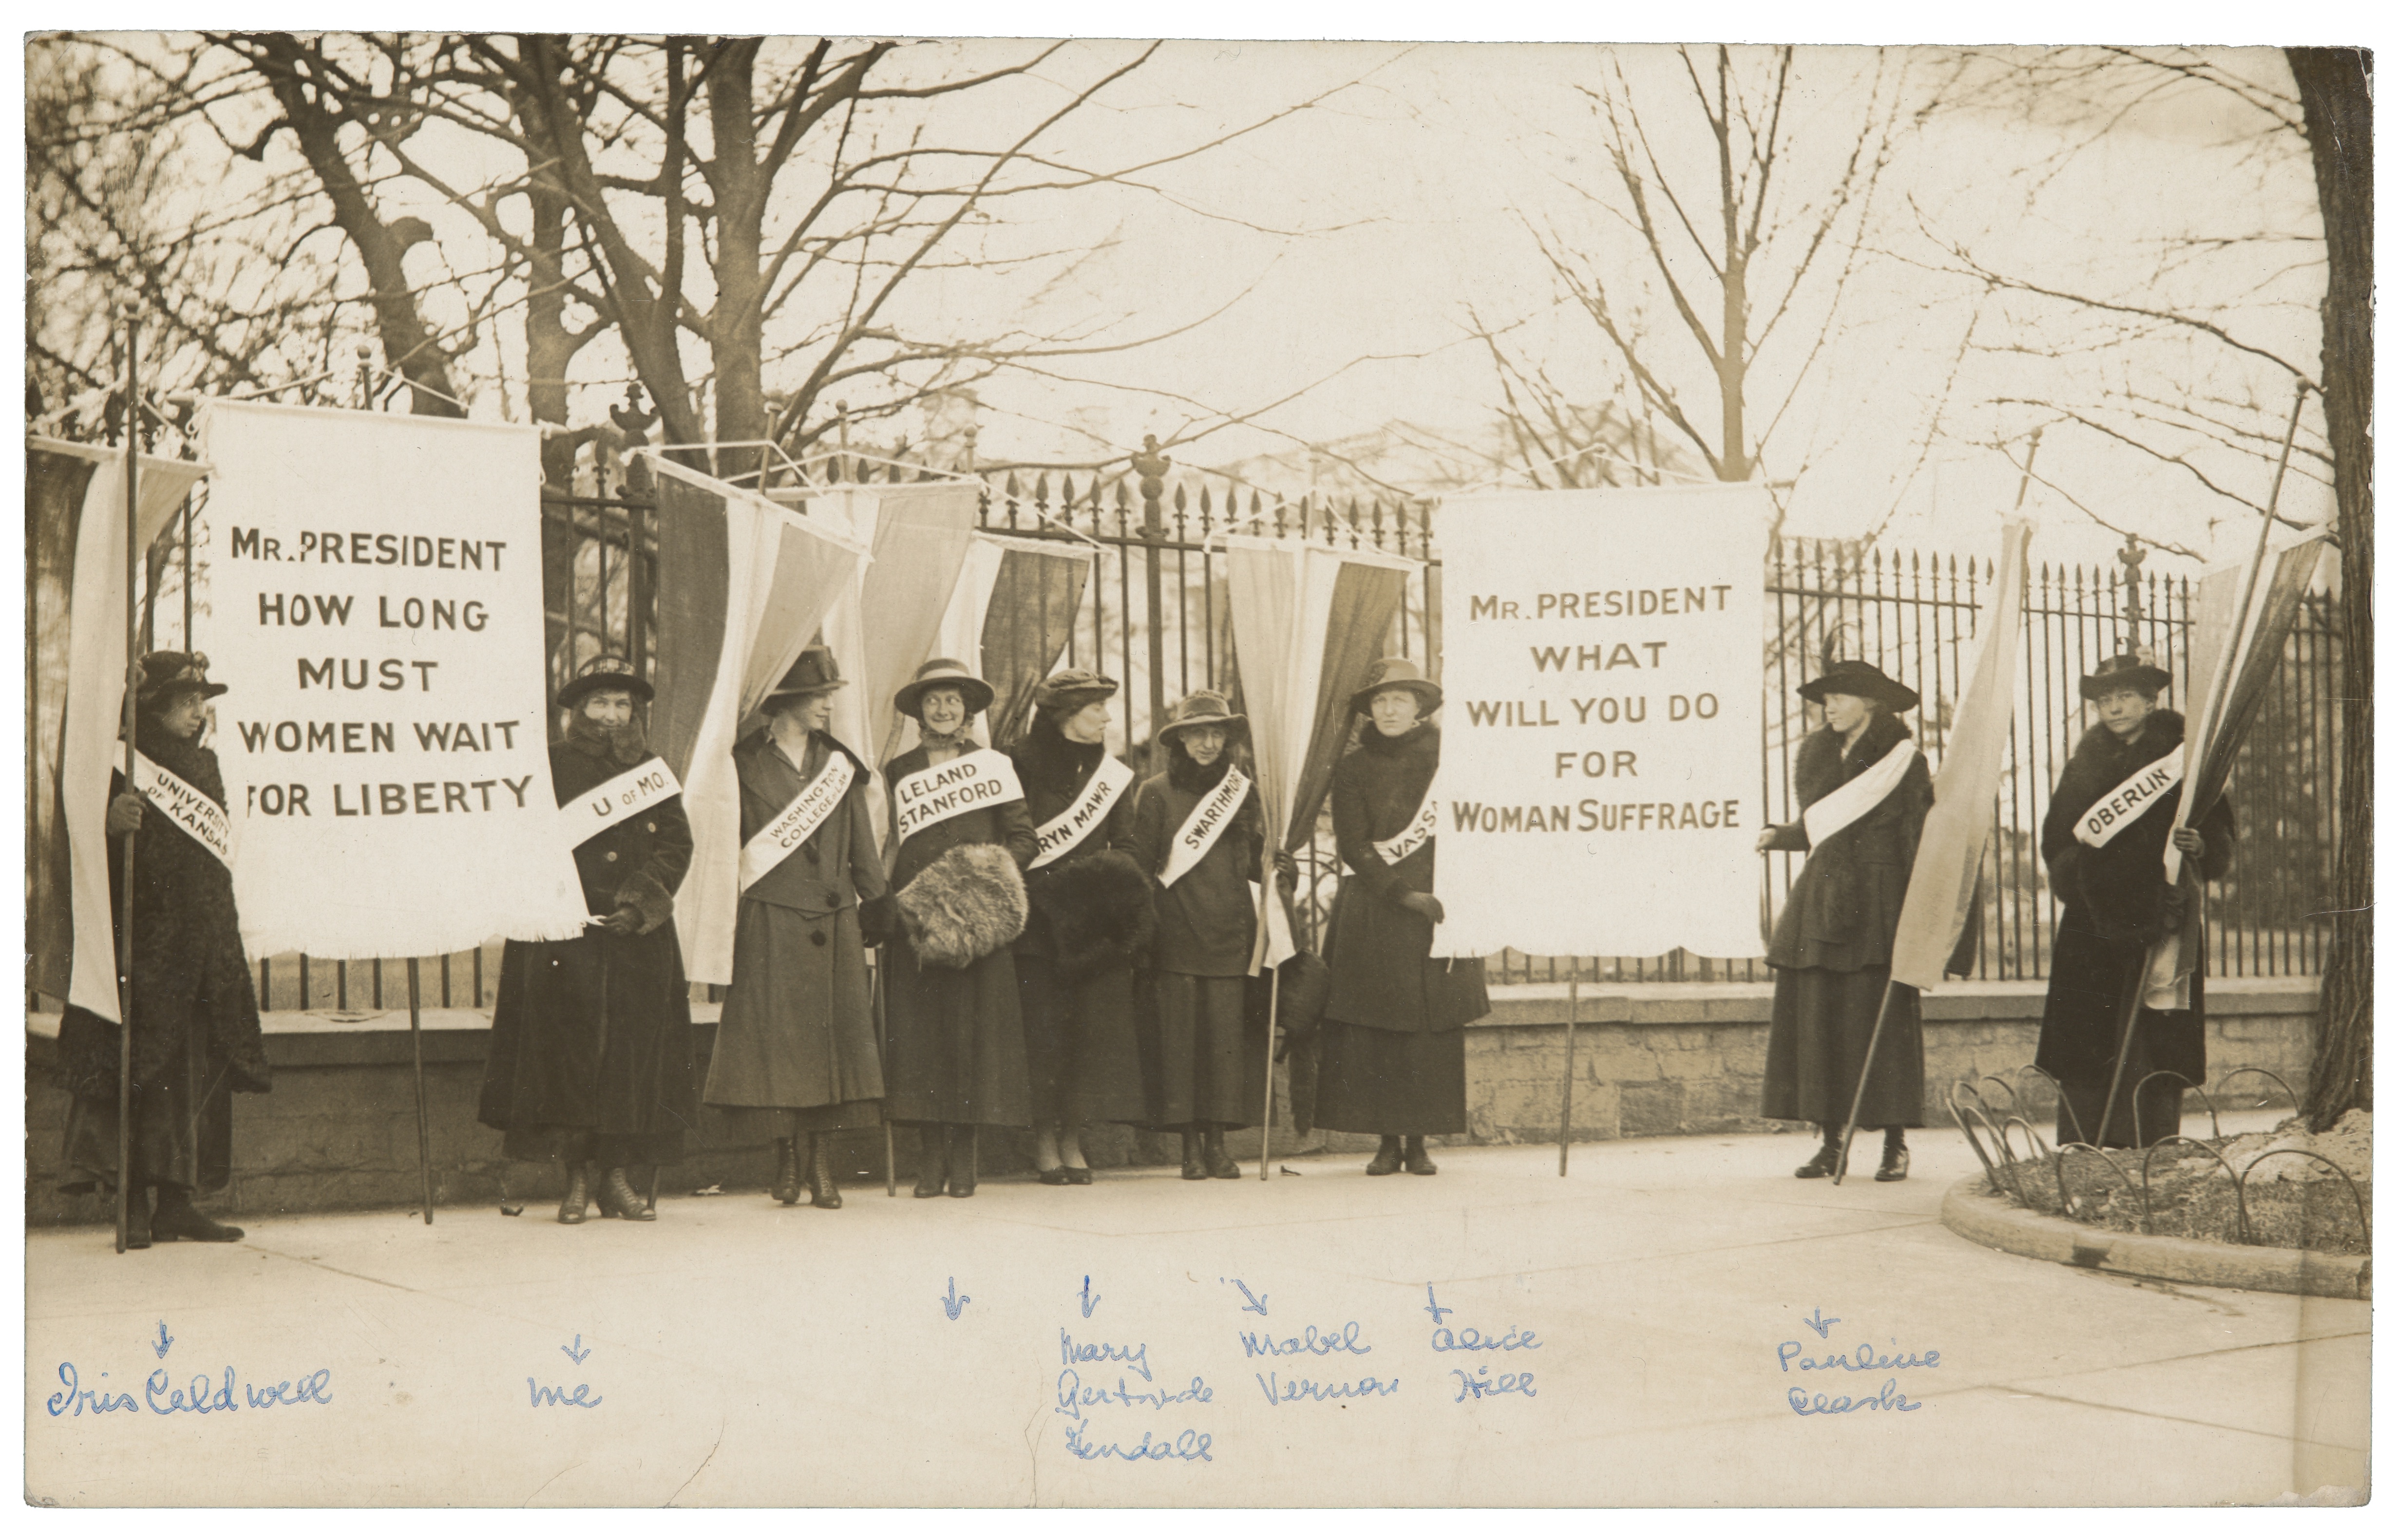 MR. PRESIDENT
HOW LONG
MUST
WOMEN WAIT
FOR LIBERTY
MR. PRESIDENT
WHAT
WILL YOU DO
FOR
WOMAN SUFFRAGE
UNIVERSITY
OF KANSAS
U OF MO.
WASHINGTON
COLLEGE LAW
LELAND
STANFORD
RYN MAWR
SWARTHMOR
VASSA
OBERLIN
Iris Caldwell
me
Mary
Gertrude
Kendall
Mabel
Vernon
Alice
Hill
Pauline
Clark